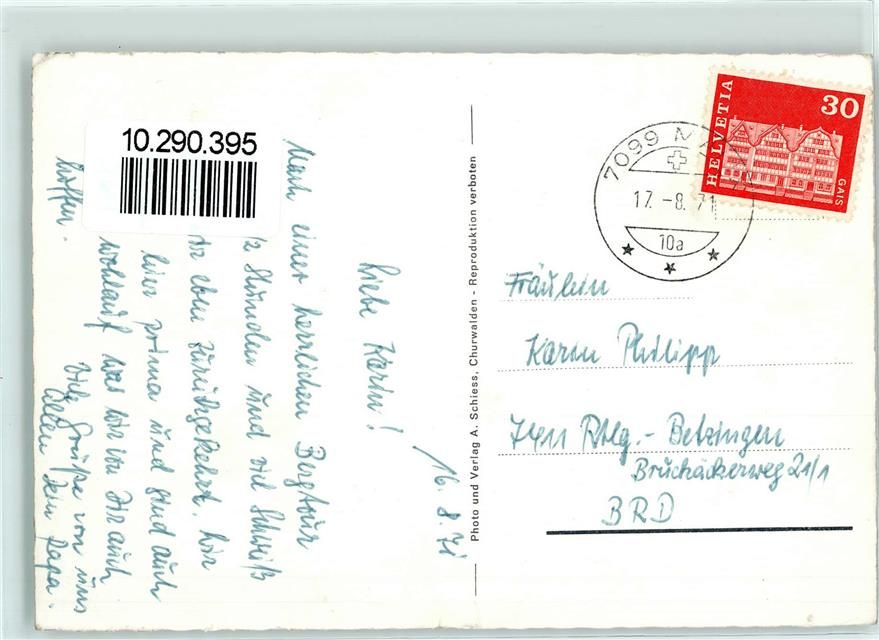 10.290.395
16.8.71
Liebe Karin!
Nach einer herrlichen Bergtour
Stunden und viel Schweiß
eben zurückgekehrt. Wir
hier prima und sind auch
wohlauf was wir von Dir auch
hoffen.
Viele Grüße von uns
allen Dein Papa.
Photo und Verlag A. Schiess, Churwalden - Reproduktion verboten
HELVETIA
30
GAIS
7099
17.-8.71
10a
Fräulein
Karin Philipp
7411 Rtlg.- Betzingen
Bruckäckerweg 21/1
BRD